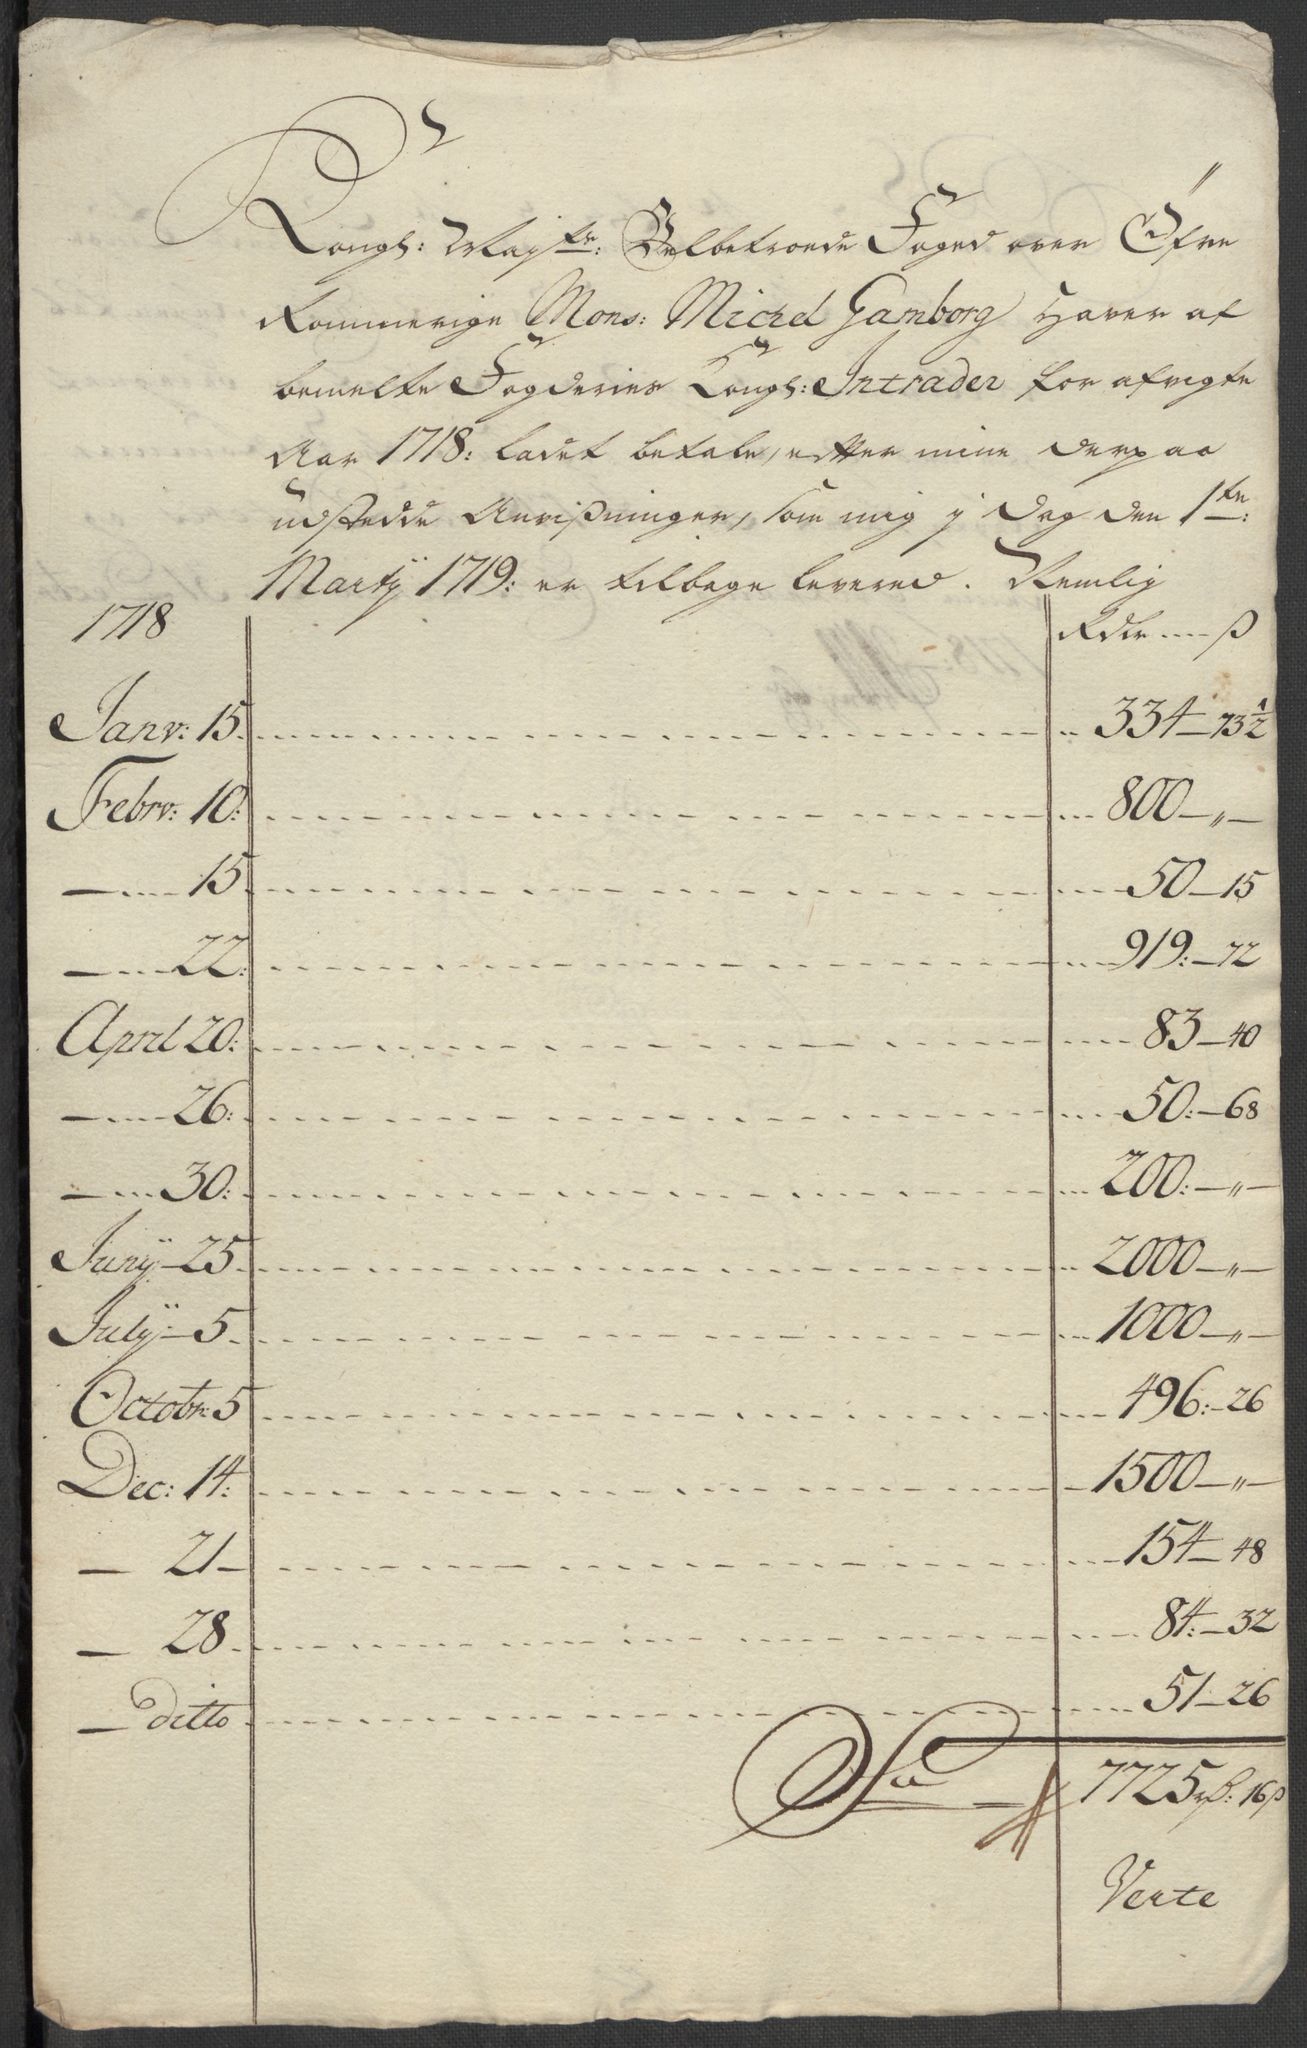 Kongl: Mayts: Velbetroede Foged over Øfre
Rommerige Mons: Michel Gamborg Haver af
bemelte Fogderies Kongl: Intrader for afvigte
Aar 1718: ladet betale, efter mine derpaa
udstedde Anvisninger, som mig j dag den 1te:
Martij 1719: er tilbage levered. Nemlig
1718 Rdlr ---- ß
Janv: 15. 334 — 73½
Febrv: 10: 800 — „ —
— 15 50 — 15
— 22: 919: — 72
April 20: 83 — 40
— 26: 50: — 68
— 30: 200: — „ —
Junij — 25 2000 — „ —
Julij — 5. 1000 — „ —
Octobr: 5 496: — 26
Dec: 14: 1500 — „ —
— 21 — 154 — 48
— 28 84: — 32
— ditto 51 — 26
Sa — 7725 rd: 16 ß
Verte